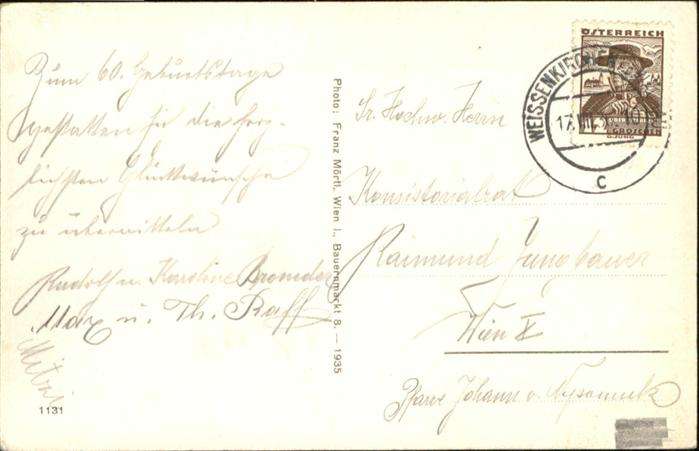 Zum 60. Geburtstage
gestatten Sie die herz-
lichsten Glückwünsche
zu übermitteln
Rudolf u. Karoline
Max u. Th. Raff
Mitzi
1131
Photo: Franz Mörtl, Wien I., Bauernmarkt 8. — 1935
ÖSTERREICH
GROSCHEN
WEISSENKIRCHEN
17.VII.
C
Sr. Hochw. Herrn
Konsistorialrat
Raimund Jungbauer
Wien X
Pfarre Johann v. Nepomuk